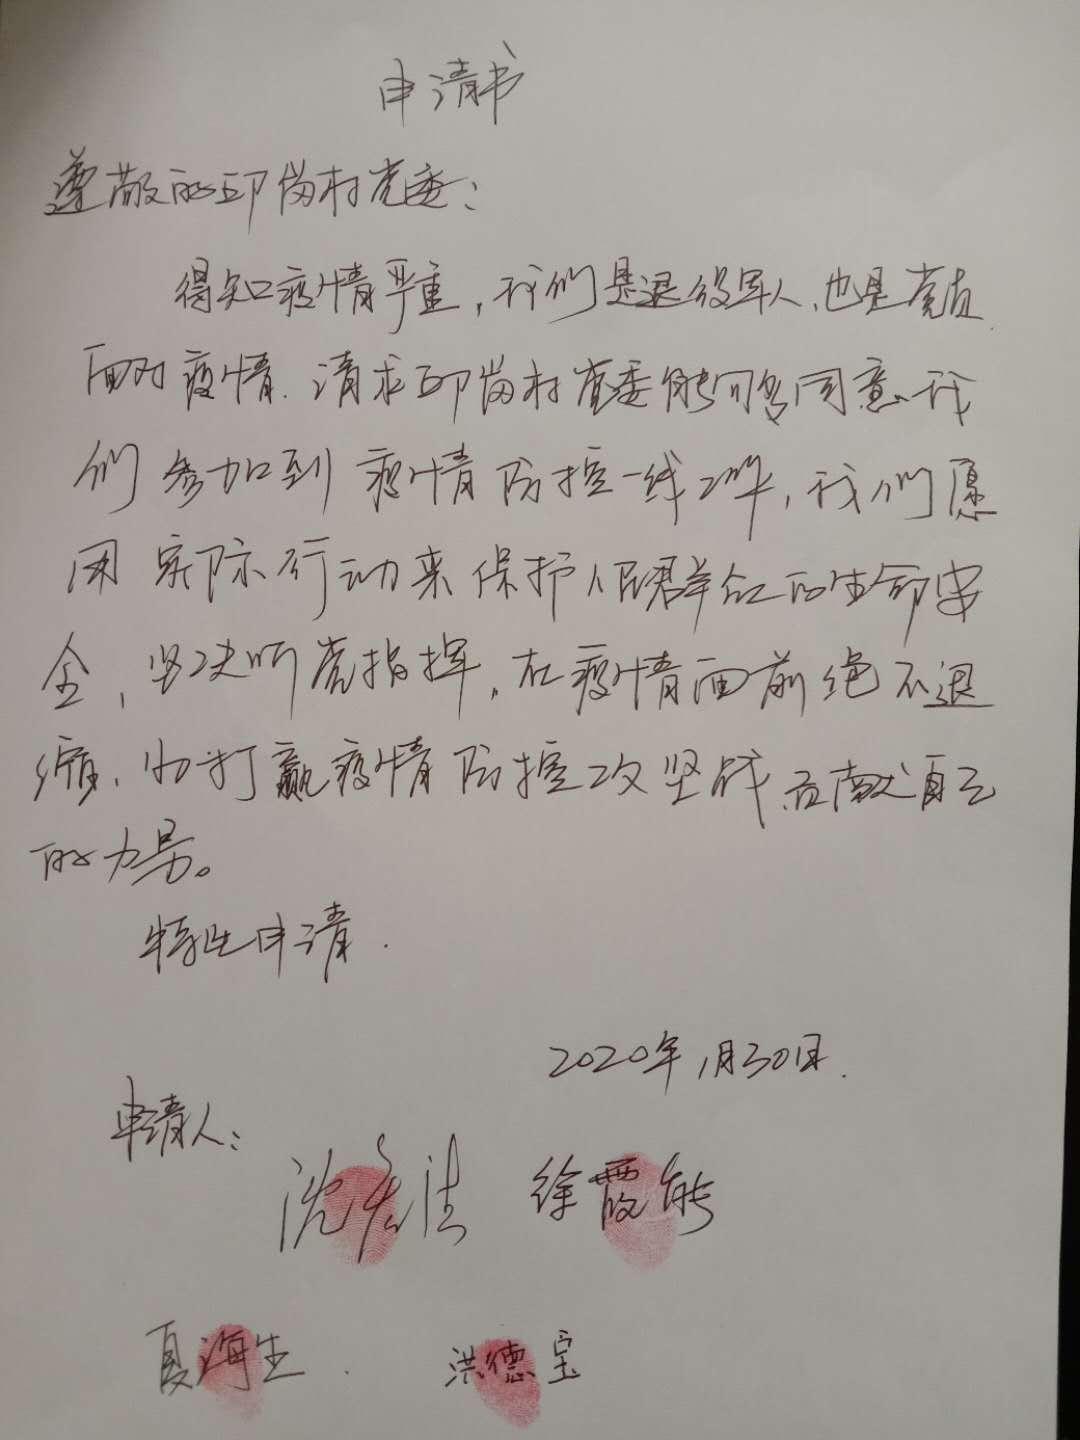 申请书
尊敬的邱岗村党委：
得知疫情严重，我们是退役军人、也是党员
面对疫情．请求邱岗村党委能够同意我
们参加到疫情防控一线工作，我们愿
用实际行动来保护人民群众的生命安
全，坚决听党指挥，在疫情面前绝不退
缩、为打赢疫情防控攻坚战贡献自己
的力量。
特此申请．
2020年1月30日．
申请人：
沈 徐霞能
夏海生． 洪德宝